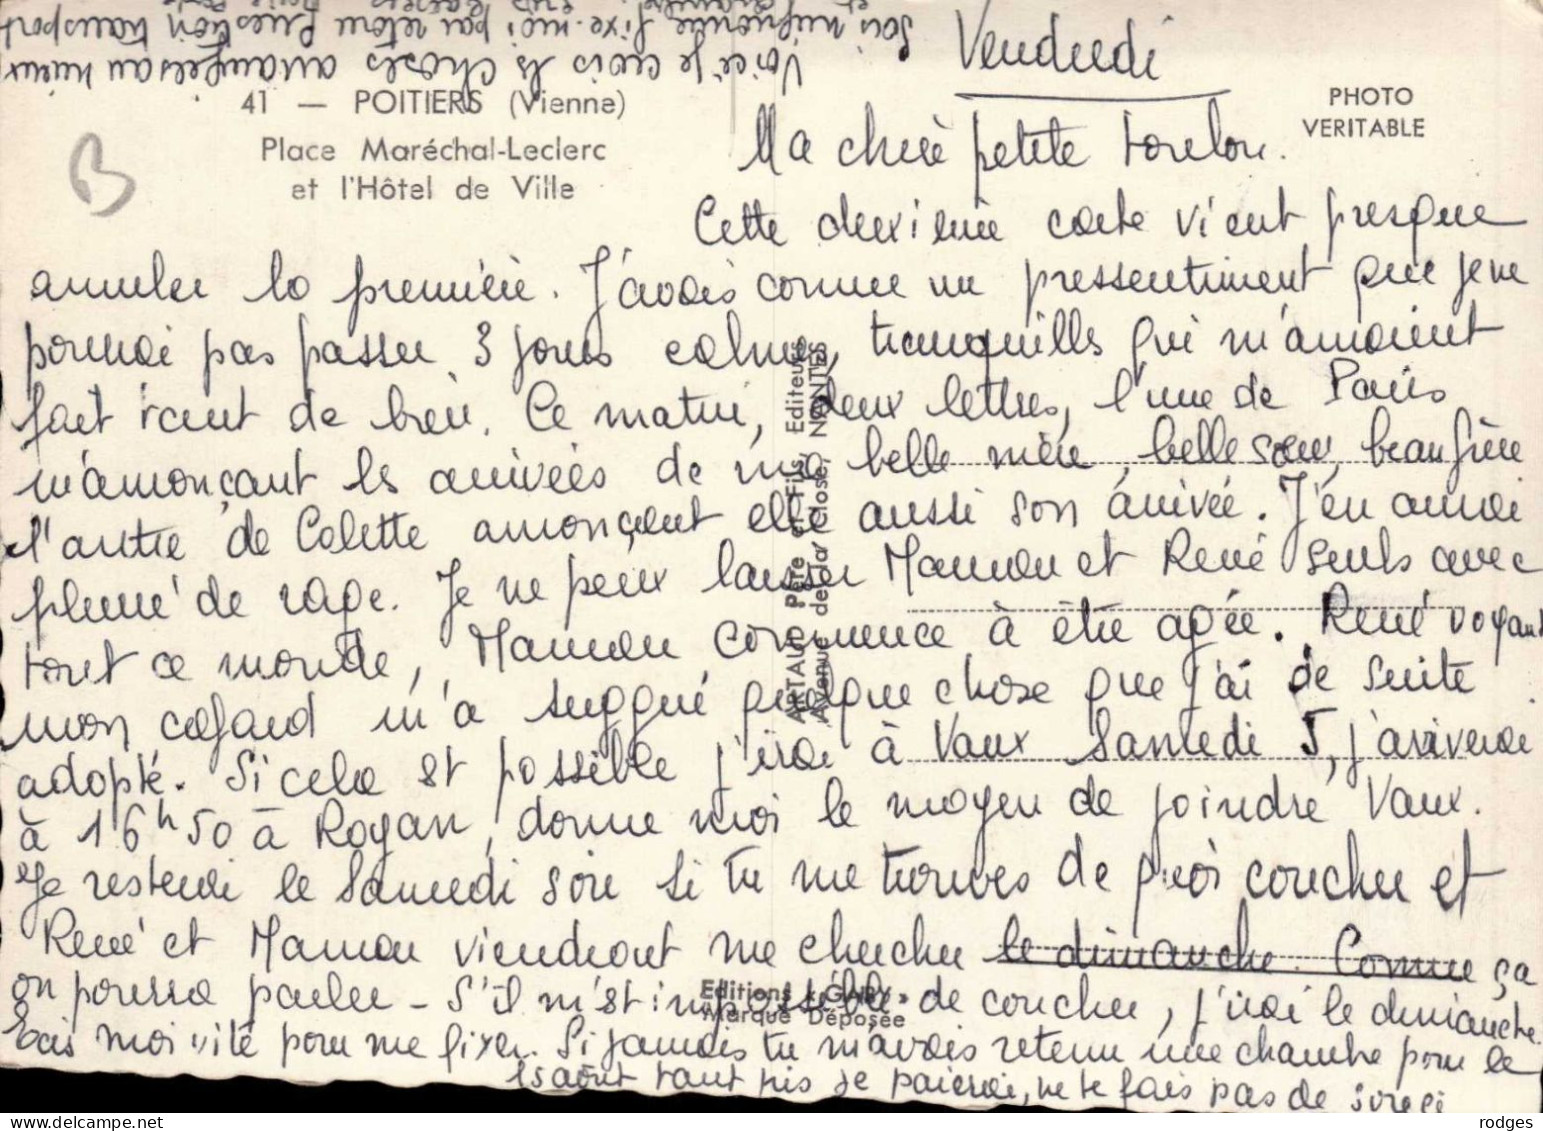 Vendredi
41 — POITIERS (Vienne)
Place Maréchal-Leclerc
et l'Hôtel de Ville
PHOTO
VERITABLE
B
Ma chère petite
Cette deuxième carte vient presque
annuler la première. J'avais comme un pressentiment que je ne
pourrai pas passer 3 jours calmes, tranquilles qui m'auraient
fait tant de bien. Ce matin, deux lettres, l'une de Paris
m'annonçant les arrivées de ma belle mère, belle sœur, beau frère
l'autre de Colette annonçant elle aussi son arrivée. J'en aurai
pleuré de rage. Je ne peux laisser Maman et René seuls avec
tout ce monde, Maman commence à être agée. René voyant
mon cafard m'a suggéré quelque chose que j'ai de suite
adopté. Si cela est possible j'irai à Vaux Samedi 5, j'arriverai
à 16h50 à Royan, donne moi le moyen de joindre Vaux.
Je resterai le Samedi soir si tu me trouves de quoi coucher et
René et Maman viendront me chercher le dimanche. Comme ça
on pourra parler - S'il m'est impossible de coucher, j'irai le dimanche.
Ecris moi vite pour me fixer. Si jamais tu m'avais retenu une chambre pour le
15 août tant pis je paierai, ne te fais pas de souci
Voici je crois les choses arrangées au mieux
Sois mignonne fixe-moi par retour question transport
ARTAUD Père et Fils, Editeurs
Avenue de la Close, NANTES
Editions « GABY »
Marque Déposée
rodges